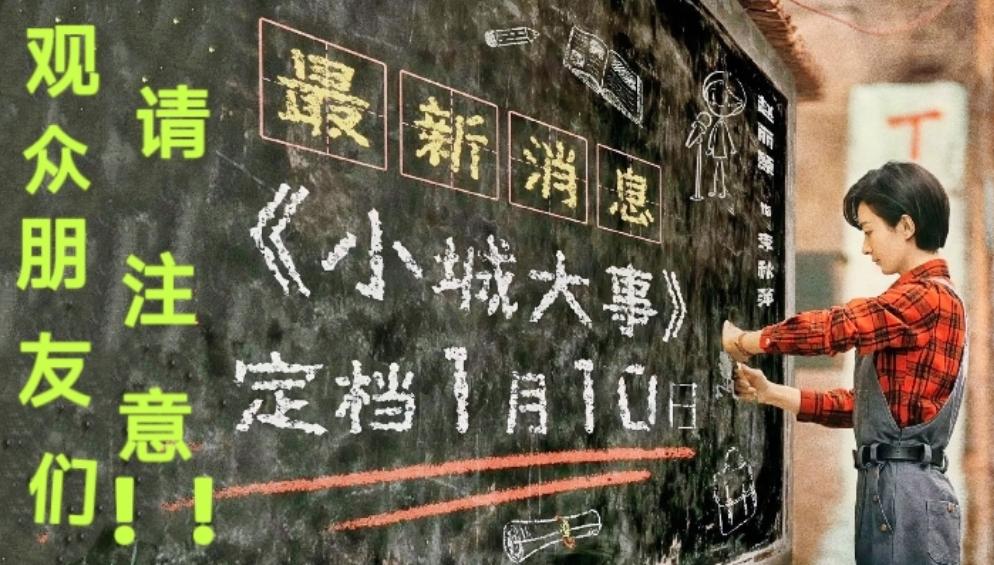 观众朋友们
请注意!!
最新消息
《小城大事》
定档1月10日
赵丽颖 饰 李秋萍